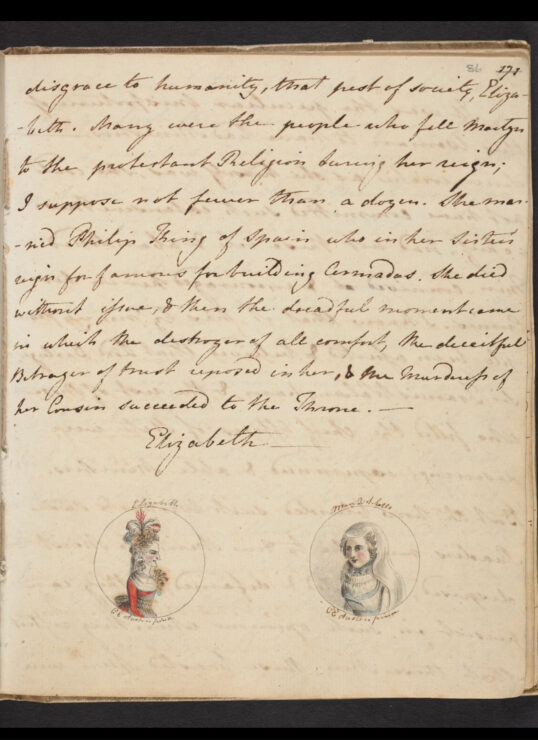 86 171
disgrace to humanity, that pest of society, Eliza-
-beth. Many were the people who fell Martyrs
to the protestant Religion during her reign;
I suppose not fewer than a dozen. She mar-
-ried Philip King of Spain who in her Sister's
reign for famous for building Armadas. She died
without issue, & then the dreadful moment came
in which the destroyer of all comfort, the deceitful
Betrayer of trust reposed in her, & the Murderess of
her Cousin succeeded to the Throne. —
Elizabeth —
Elizabeth
Mary Q. of Scots
C E Austen pinx
C E Austen pinx